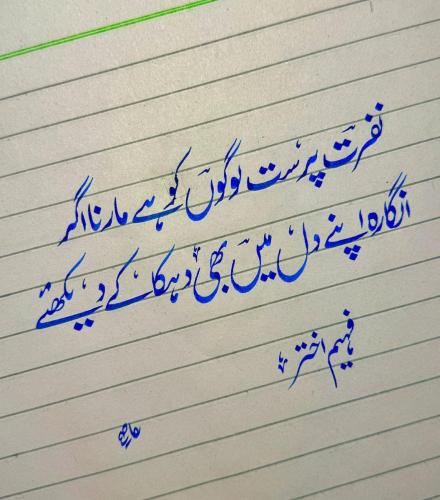 نفرت پرست لوگوں کو ہے مارنا اگر
انگارہ اپنے دل میں بھی دہکا کے دیکھئے
فہیم اختر